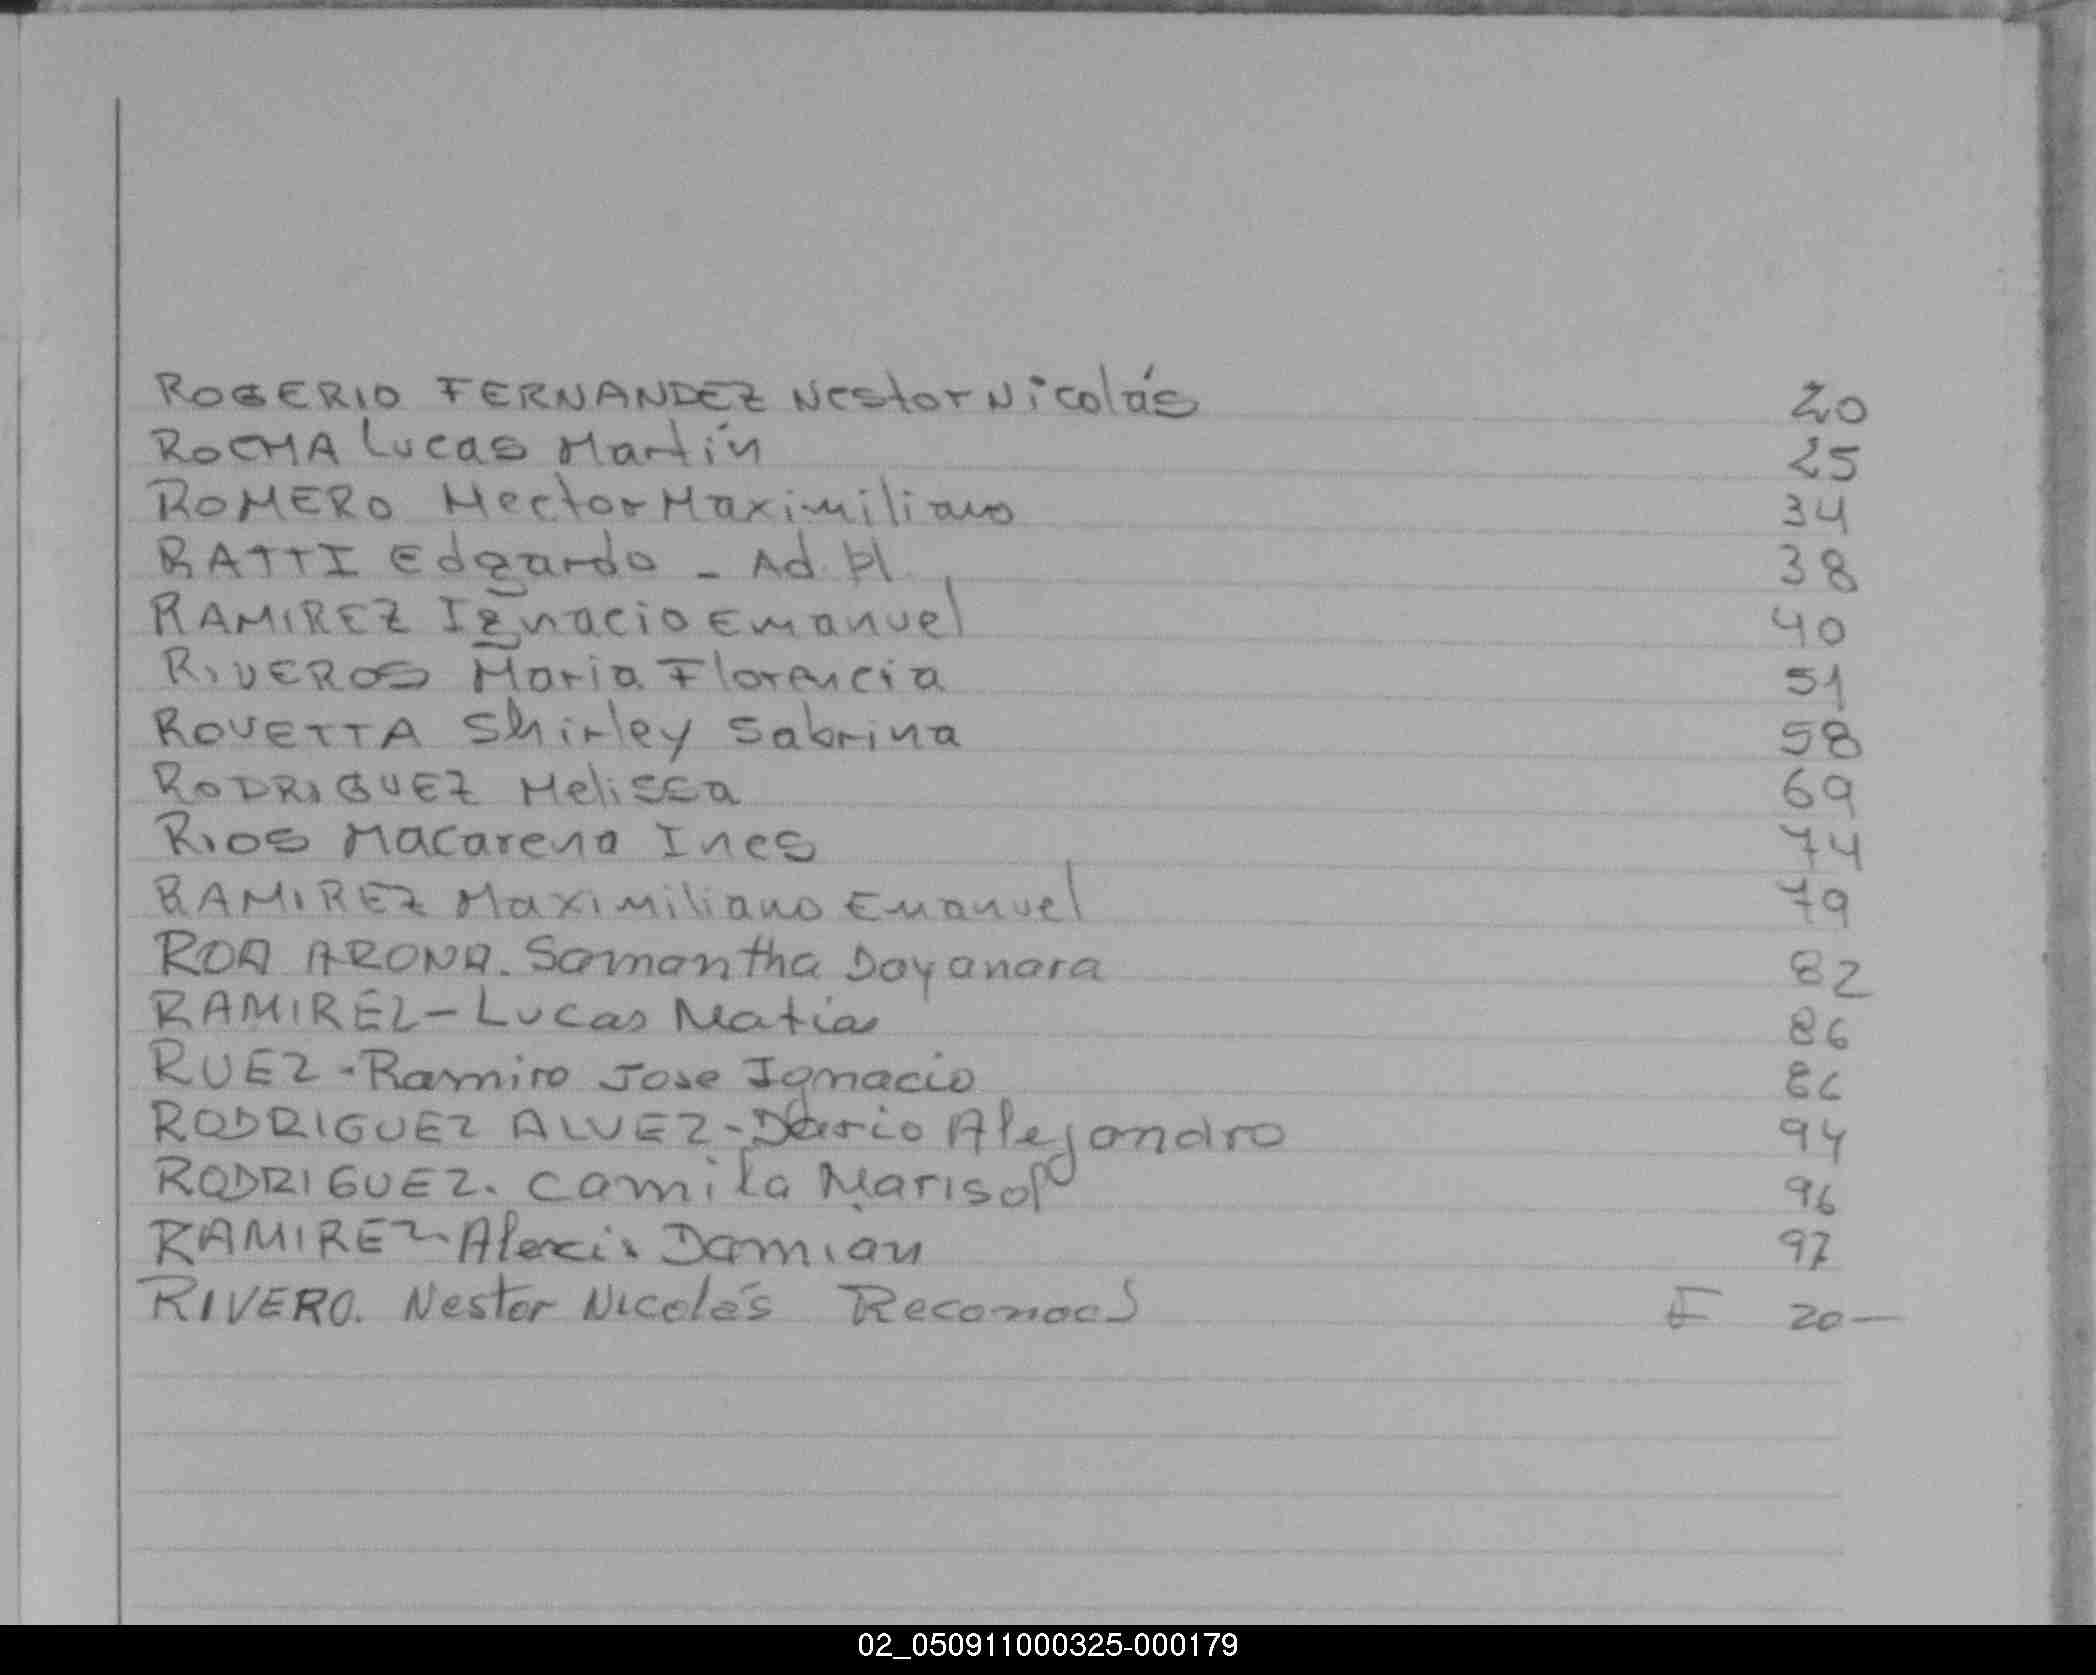 ROGERIO FERNANDEZ Nestor Nicolás 20
ROCHA Lucas Martín 25
ROMERO Hector Maximiliano 34
RATTI Edgardo - Ad. Pl. 38
RAMIREZ Ignacio Emanuel 40
RIVEROS Maria Florencia 51
ROVETTA Shirley Sabrina 58
RODRIGUEZ Melissa 69
RIOS Macarena Ines 74
RAMIREZ Maximiliano Emanuel 79
ROA ARONA. Samantha Dayanara 82
RAMIREZ - Lucas Matias 86
RUEZ - Ramiro Jose Ignacio 86
RODRIGUEZ ALVEZ - Dario Alejandro 94
RODRIGUEZ. Camila Marisol 96
RAMIREZ - Alexis Damian 97
RIVERO. Nestor Nicolás F 20 —
02_050911000325-000179